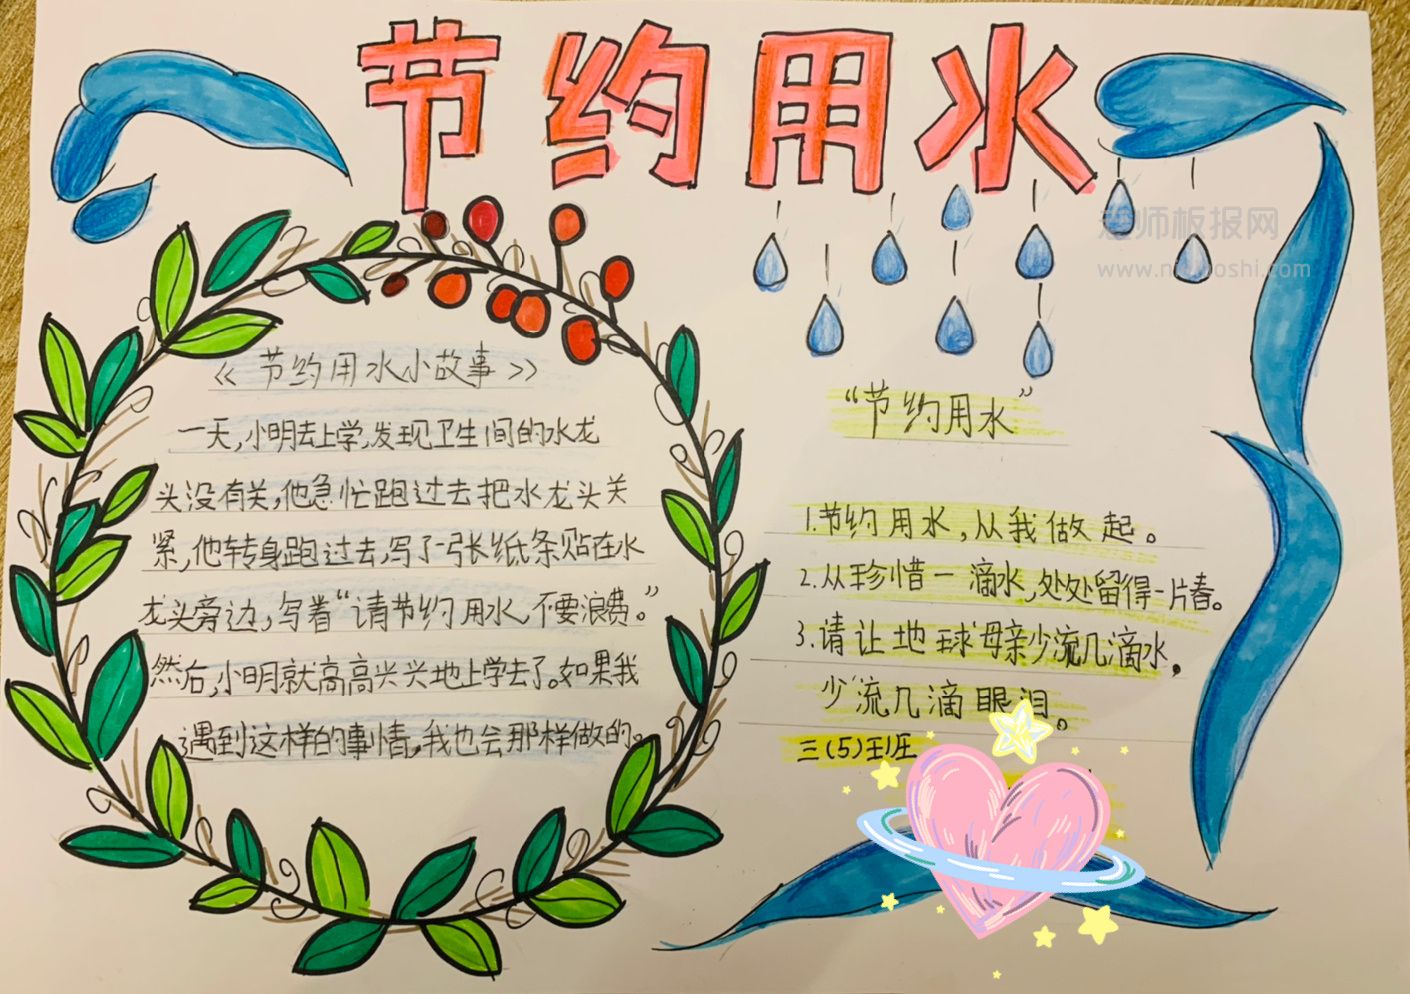 节约用水
老师板报网
《节约用水小故事》
一天,小明去上学,发现卫生间的水龙
头没有关,他急忙跑过去把水龙头关
紧,他转身跑过去,写了一张纸条贴在水
龙头旁边,写着“请节约用水,不要浪费。”
然后,小明就高高兴兴地上学去了。如果我
遇到这样的事情,我也会那样做的。
“节约用水”
1.节约用水,从我做起。
2.从珍惜一滴水,处处留得一片春。
3.请让地球母亲少流几滴水,
少流几滴眼泪。
三(5)班